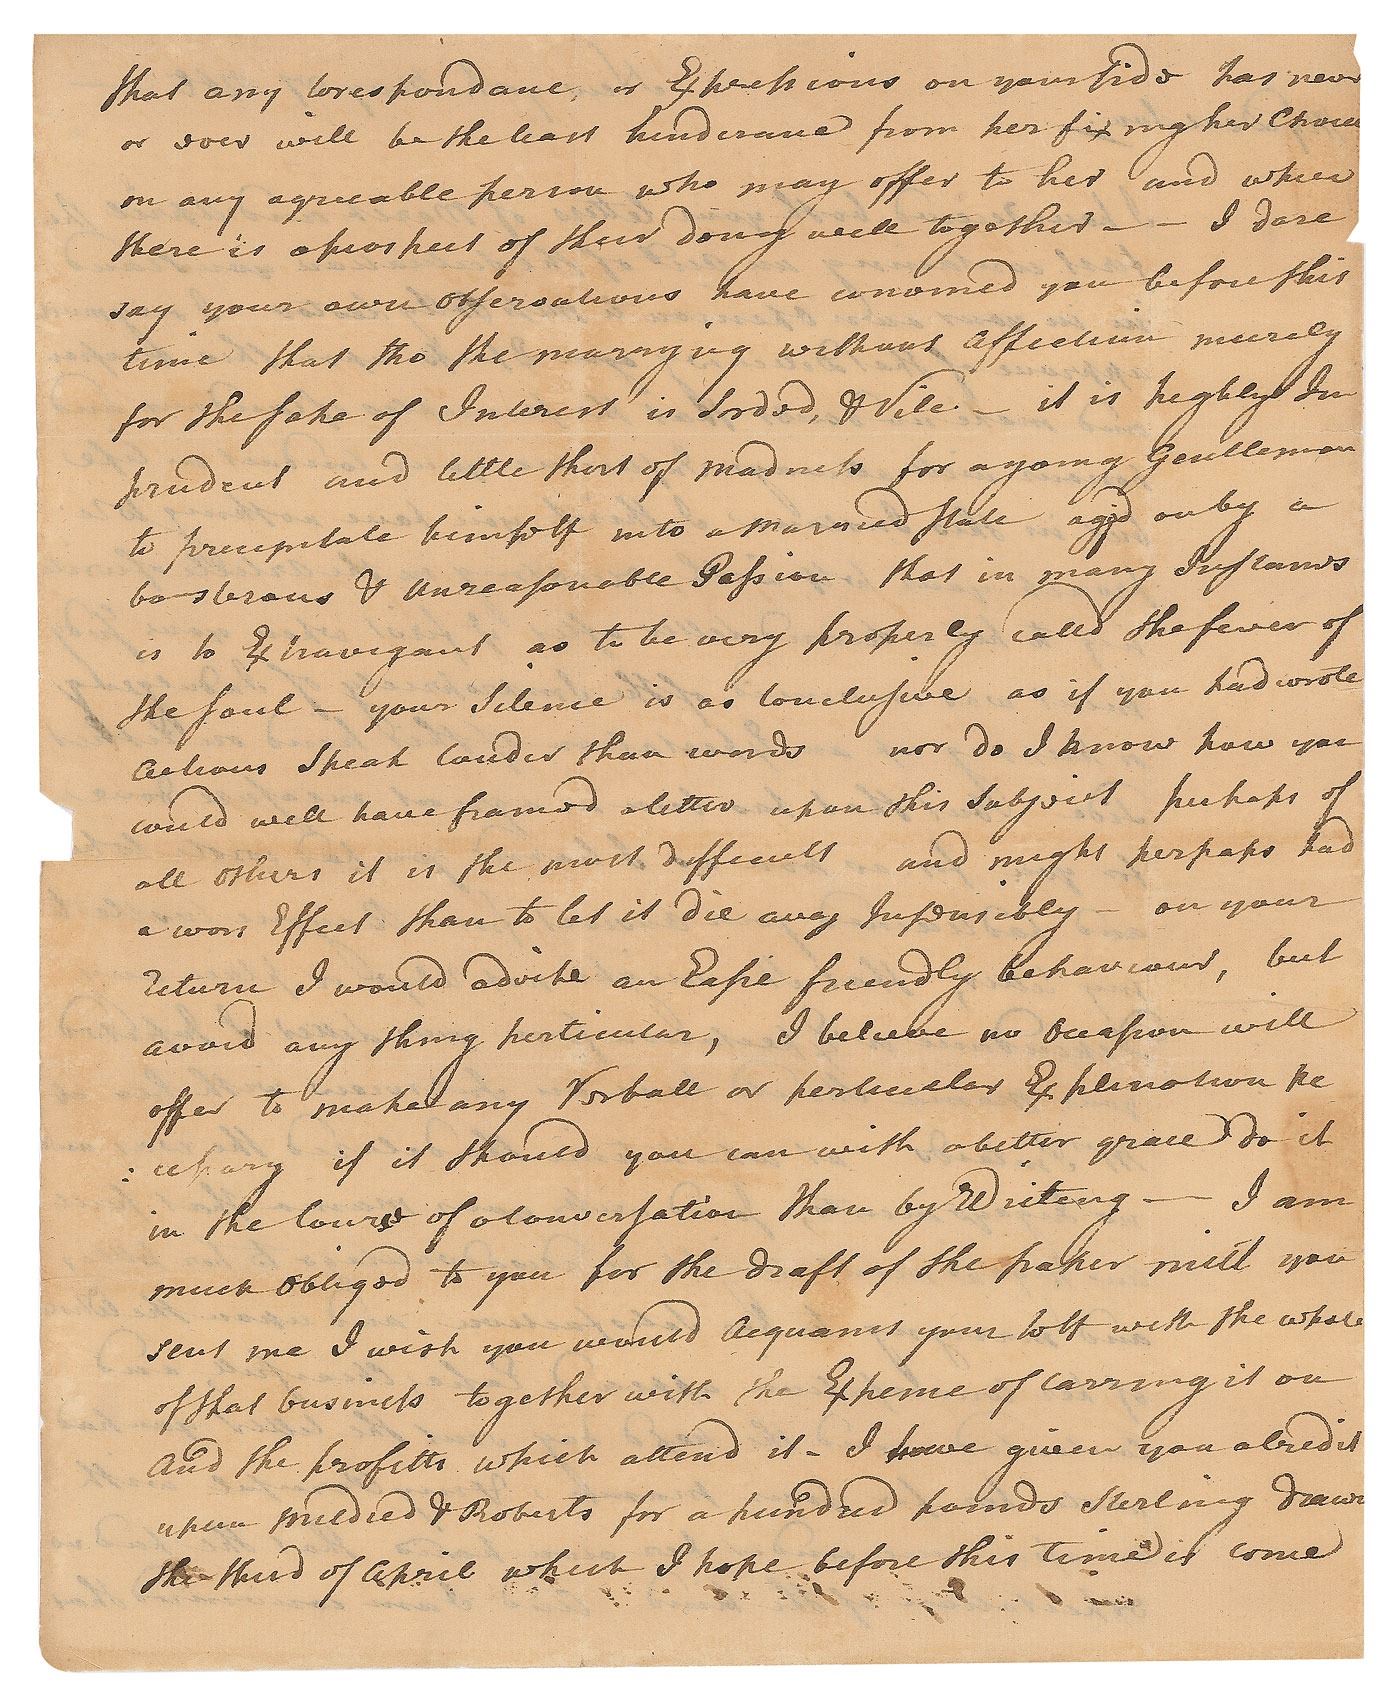 that any Corespondance, or Expressions on your side has never
or ever will be the least hinderance from her fixing her Choice
on any agreeable person who may offer to her and when
there is a prospect of their doing well together – – I dare
say your own observations have convinced you before this
time that tho the marrying without Affection meerly
for the sake of Interest is Sorded, & Vile – it is highly Im
prudent and little short of madness for a young Gentleman
to precipitate himself into a Marrried State aged on by a
boisterous & unreasonable Passion that in many Instances
is so Extravigant as to be very properly called the fever of
the soul – your Silence is as Conclusive as if you had wrote
Actions Speak louder than words nor do I know how you
could well have framed a letter upon this Subject perhaps of
all others it is the most difficult and might perhaps had
a wors Effect than to let it die away Insensibly – on your
return I would advise an Easie friendly behaviour, but
avoid any thing perticular, I believe no Occasion will
offer to make any Verball or perticular Explination ne
: cessary if it should you can with a better grace do it
in the Course of a Conversation than by Writeing – – I am
much obliged to you for the draft of the paper mill you
sent me I wish you would Acquaint your self with the whole
of that business together with the Expence of Carring it on
And the profitts which attend it – I have given you a Credit
upon Mildred & Roberts for a hundred pounds Sterling drawn
the third of April which I hope before this time is come